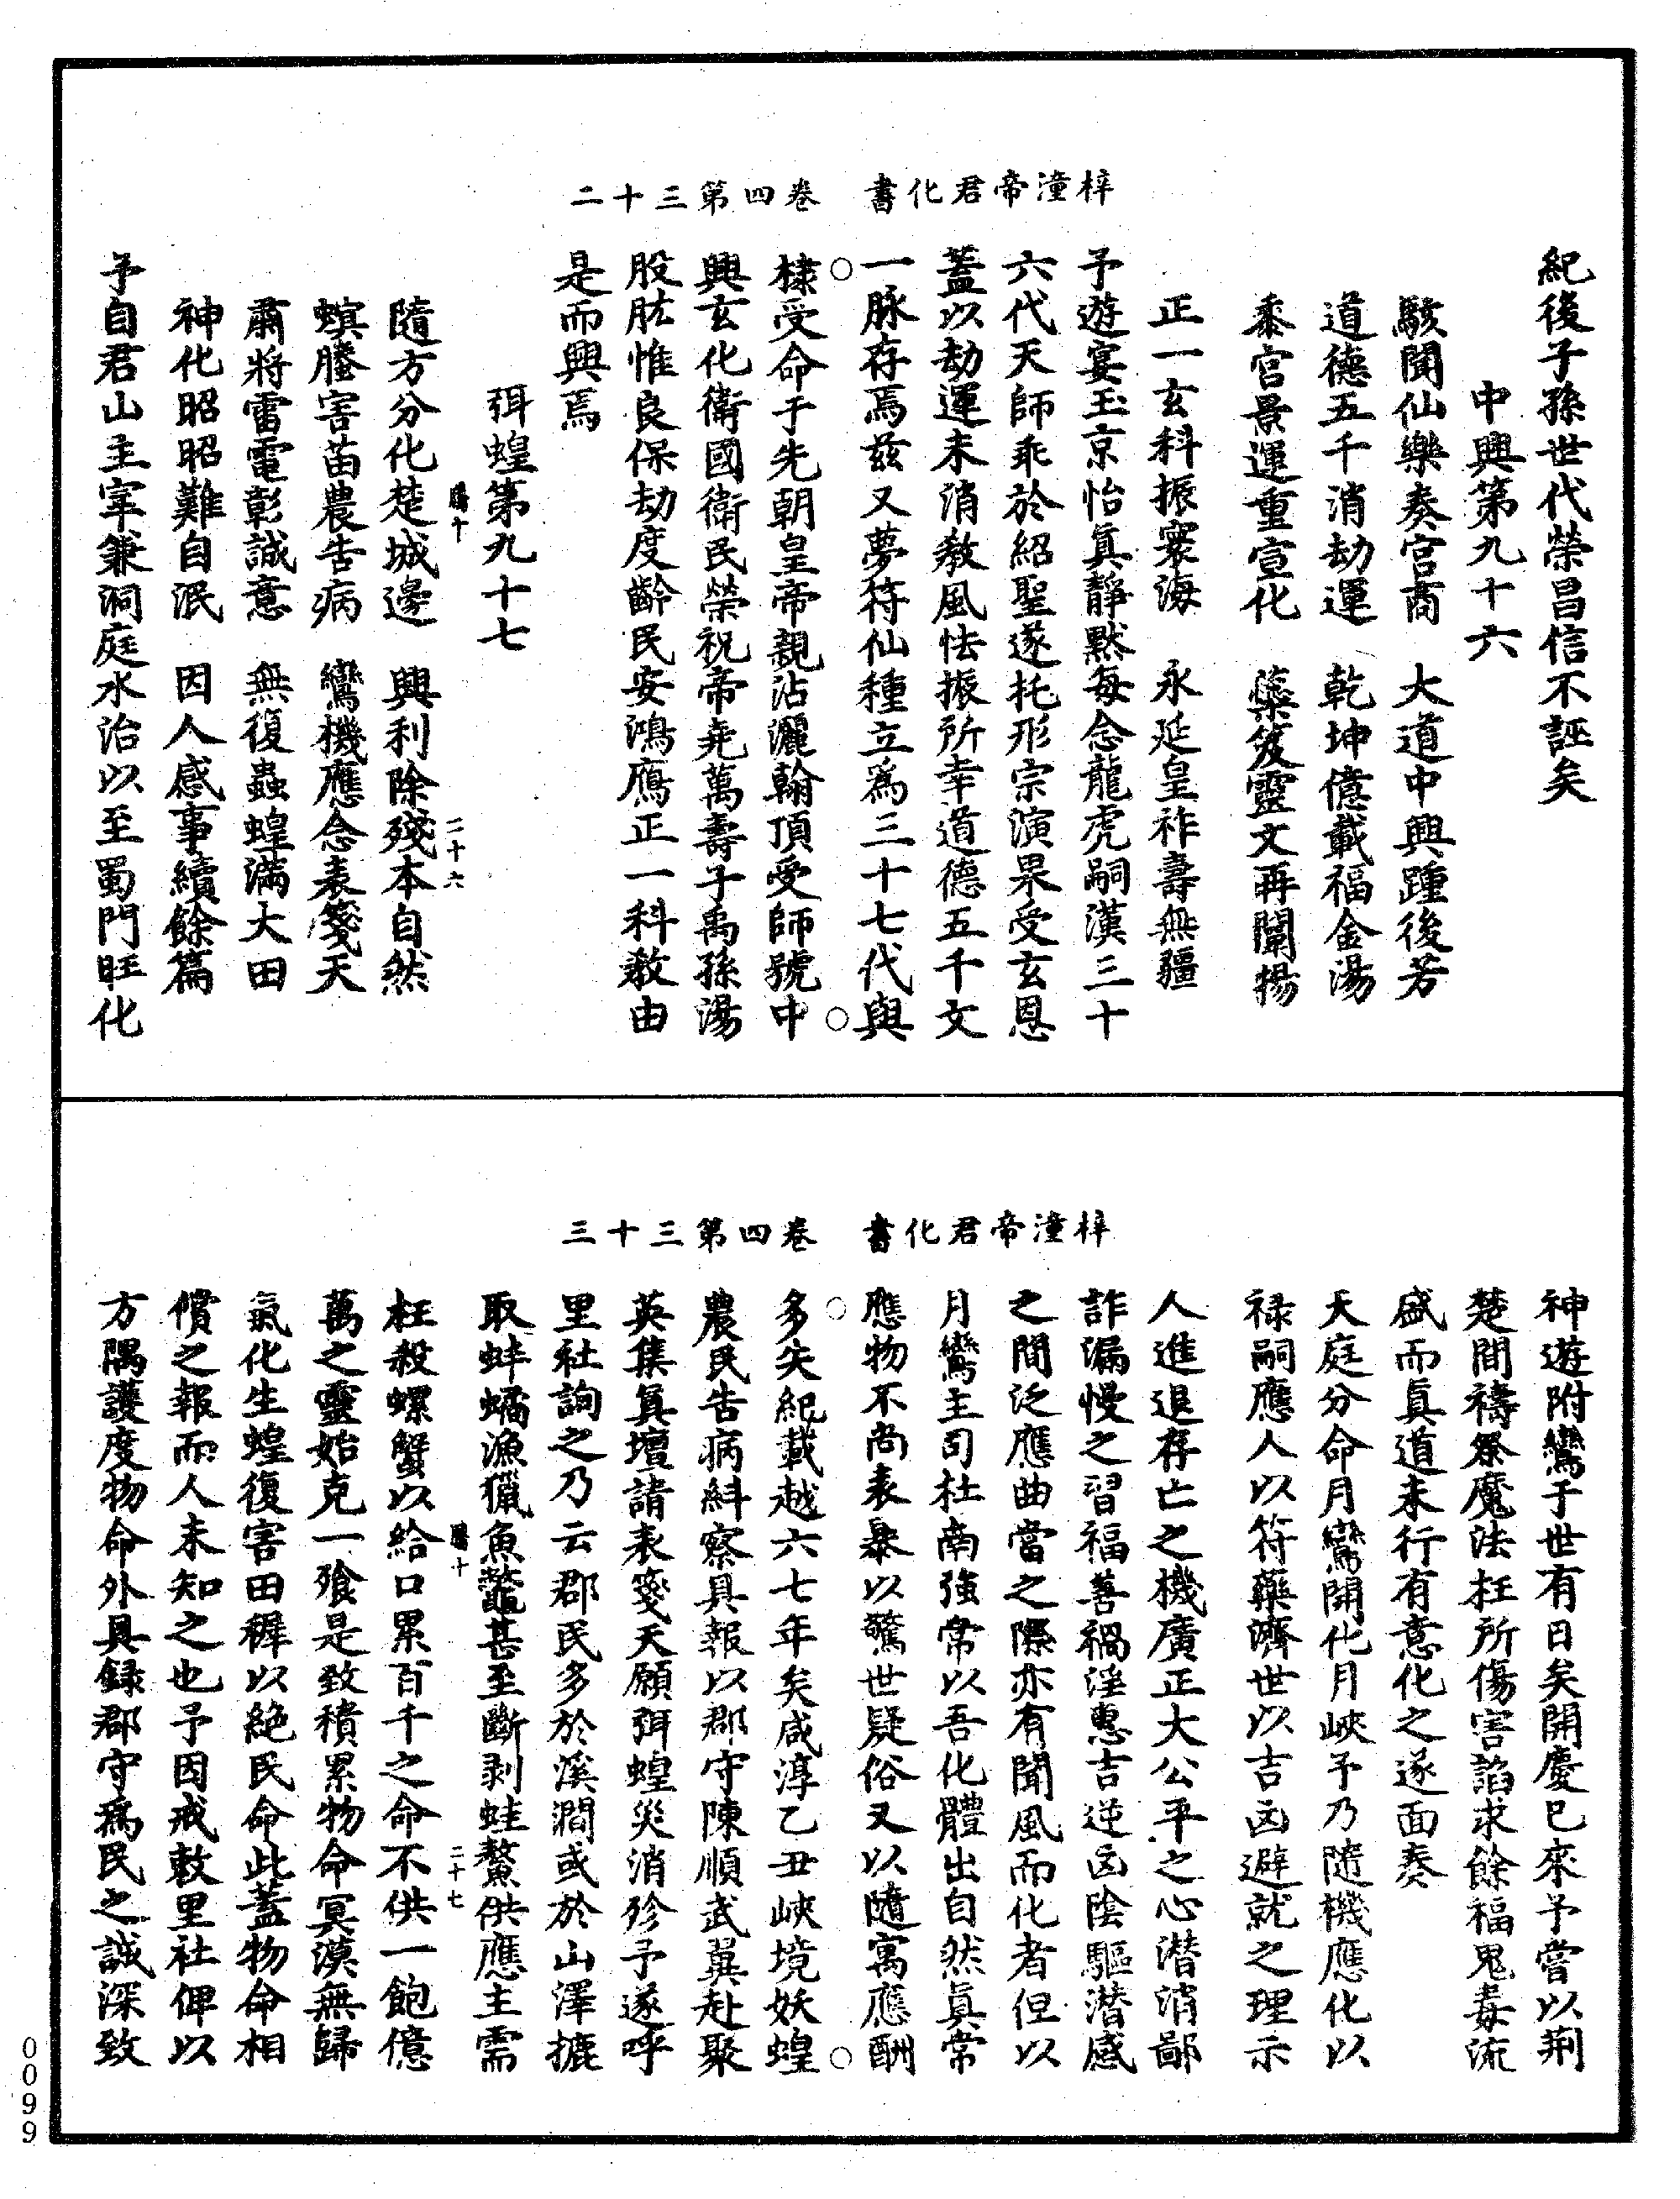 梓潼帝君化書　卷四第三十二
紀後子孫世代榮昌信不誣矣
中興第九十六
駭聞仙樂奏宮商　大道中興踵後芳
道德五千消劫運　乾坤億載福金湯
黍宮景運重宣化　蘂笈靈文再闡揚
正一玄科振寰海　永延皇祚壽無疆
予遊宴玉京怡真靜黙每念龍虎嗣漢三十
六代天師乖於紹聖遂托形宗演果受玄恩
蓋以劫運未消教風怯振所幸道德五千文
一脉存焉兹又夢符仙種立爲三十七代與
棣受命于先朝皇帝親沾灑翰頂受師號中
興玄化衛國衛民榮祝帝堯萬壽子禹孫湯
股肱惟良保劫度齡民安鴻鴈正一科教由
是而興焉
弭蝗第九十七
隨方分化楚城邊　興利除殘本自然
螟螣害苗農告病　鸞機應念表箋天
肅將雷電彰誠意　無復蟲蝗滿大田
神化昭昭難自泯　因人感事續餘篇
予自君山主宰兼洞庭水治以至蜀門旺化
二十六
梓潼帝君化書　卷四第三十三
神遊附鸞于世有日矣開慶已來予嘗以荆
楚間禱祭魔法枉所傷害諂求餘福鬼毒流
盛而真道未行有意化之遂面奏
天庭分命月鸞開化月峽予乃隨機應化以
禄嗣應人以符藥濟世以吉凶避就之理示
人進退存亡之機廣正大公平之心潜消鄙
詐漏慢之習福善禍淫惠吉逆凶陰驅潜感
之間泛應曲當之際亦有聞風而化者但以
月鸞主司杜南強常以吾化體出自然真常
應物不尚表暴以驚世疑俗又以隨寓應酬
多失紀載越六七年矣咸淳乙丑峽境妖蝗
農民告病糾察具報以郡守陳順武異赴聚
英集真壇請表箋天願弭蝗災消殄予遂呼
里社詢之乃云郡民多於溪澗或於山澤摝
取蚌蟠漁獵魚鼈甚至斷剥蛙鰲供應主需
枉殺螺蟹以給口累百千之命不供一飽億
萬之靈始克一飱是致積累物命冥漠無歸
氣化生蝗復害田穉以絶民命此蓋物命相
償之報而人未知之也予因戒敕里社俾以
方隅護度物命外具録郡守爲民之誠深致
二十七
0099